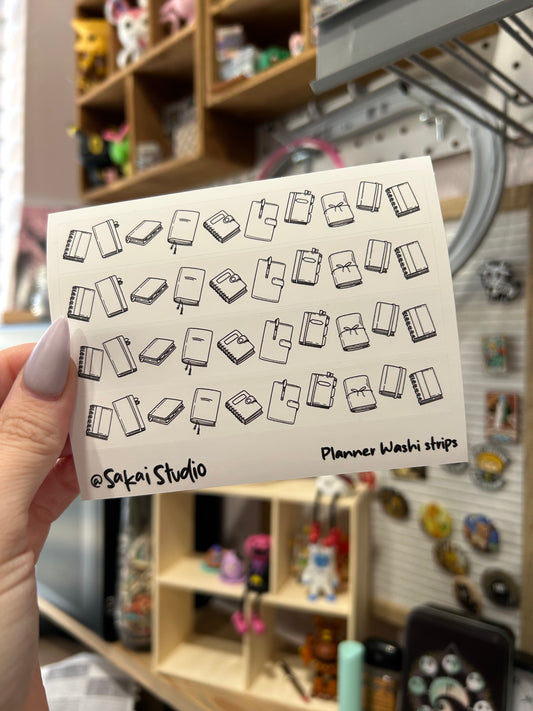 Planner Washi strips
@Sakai Studio